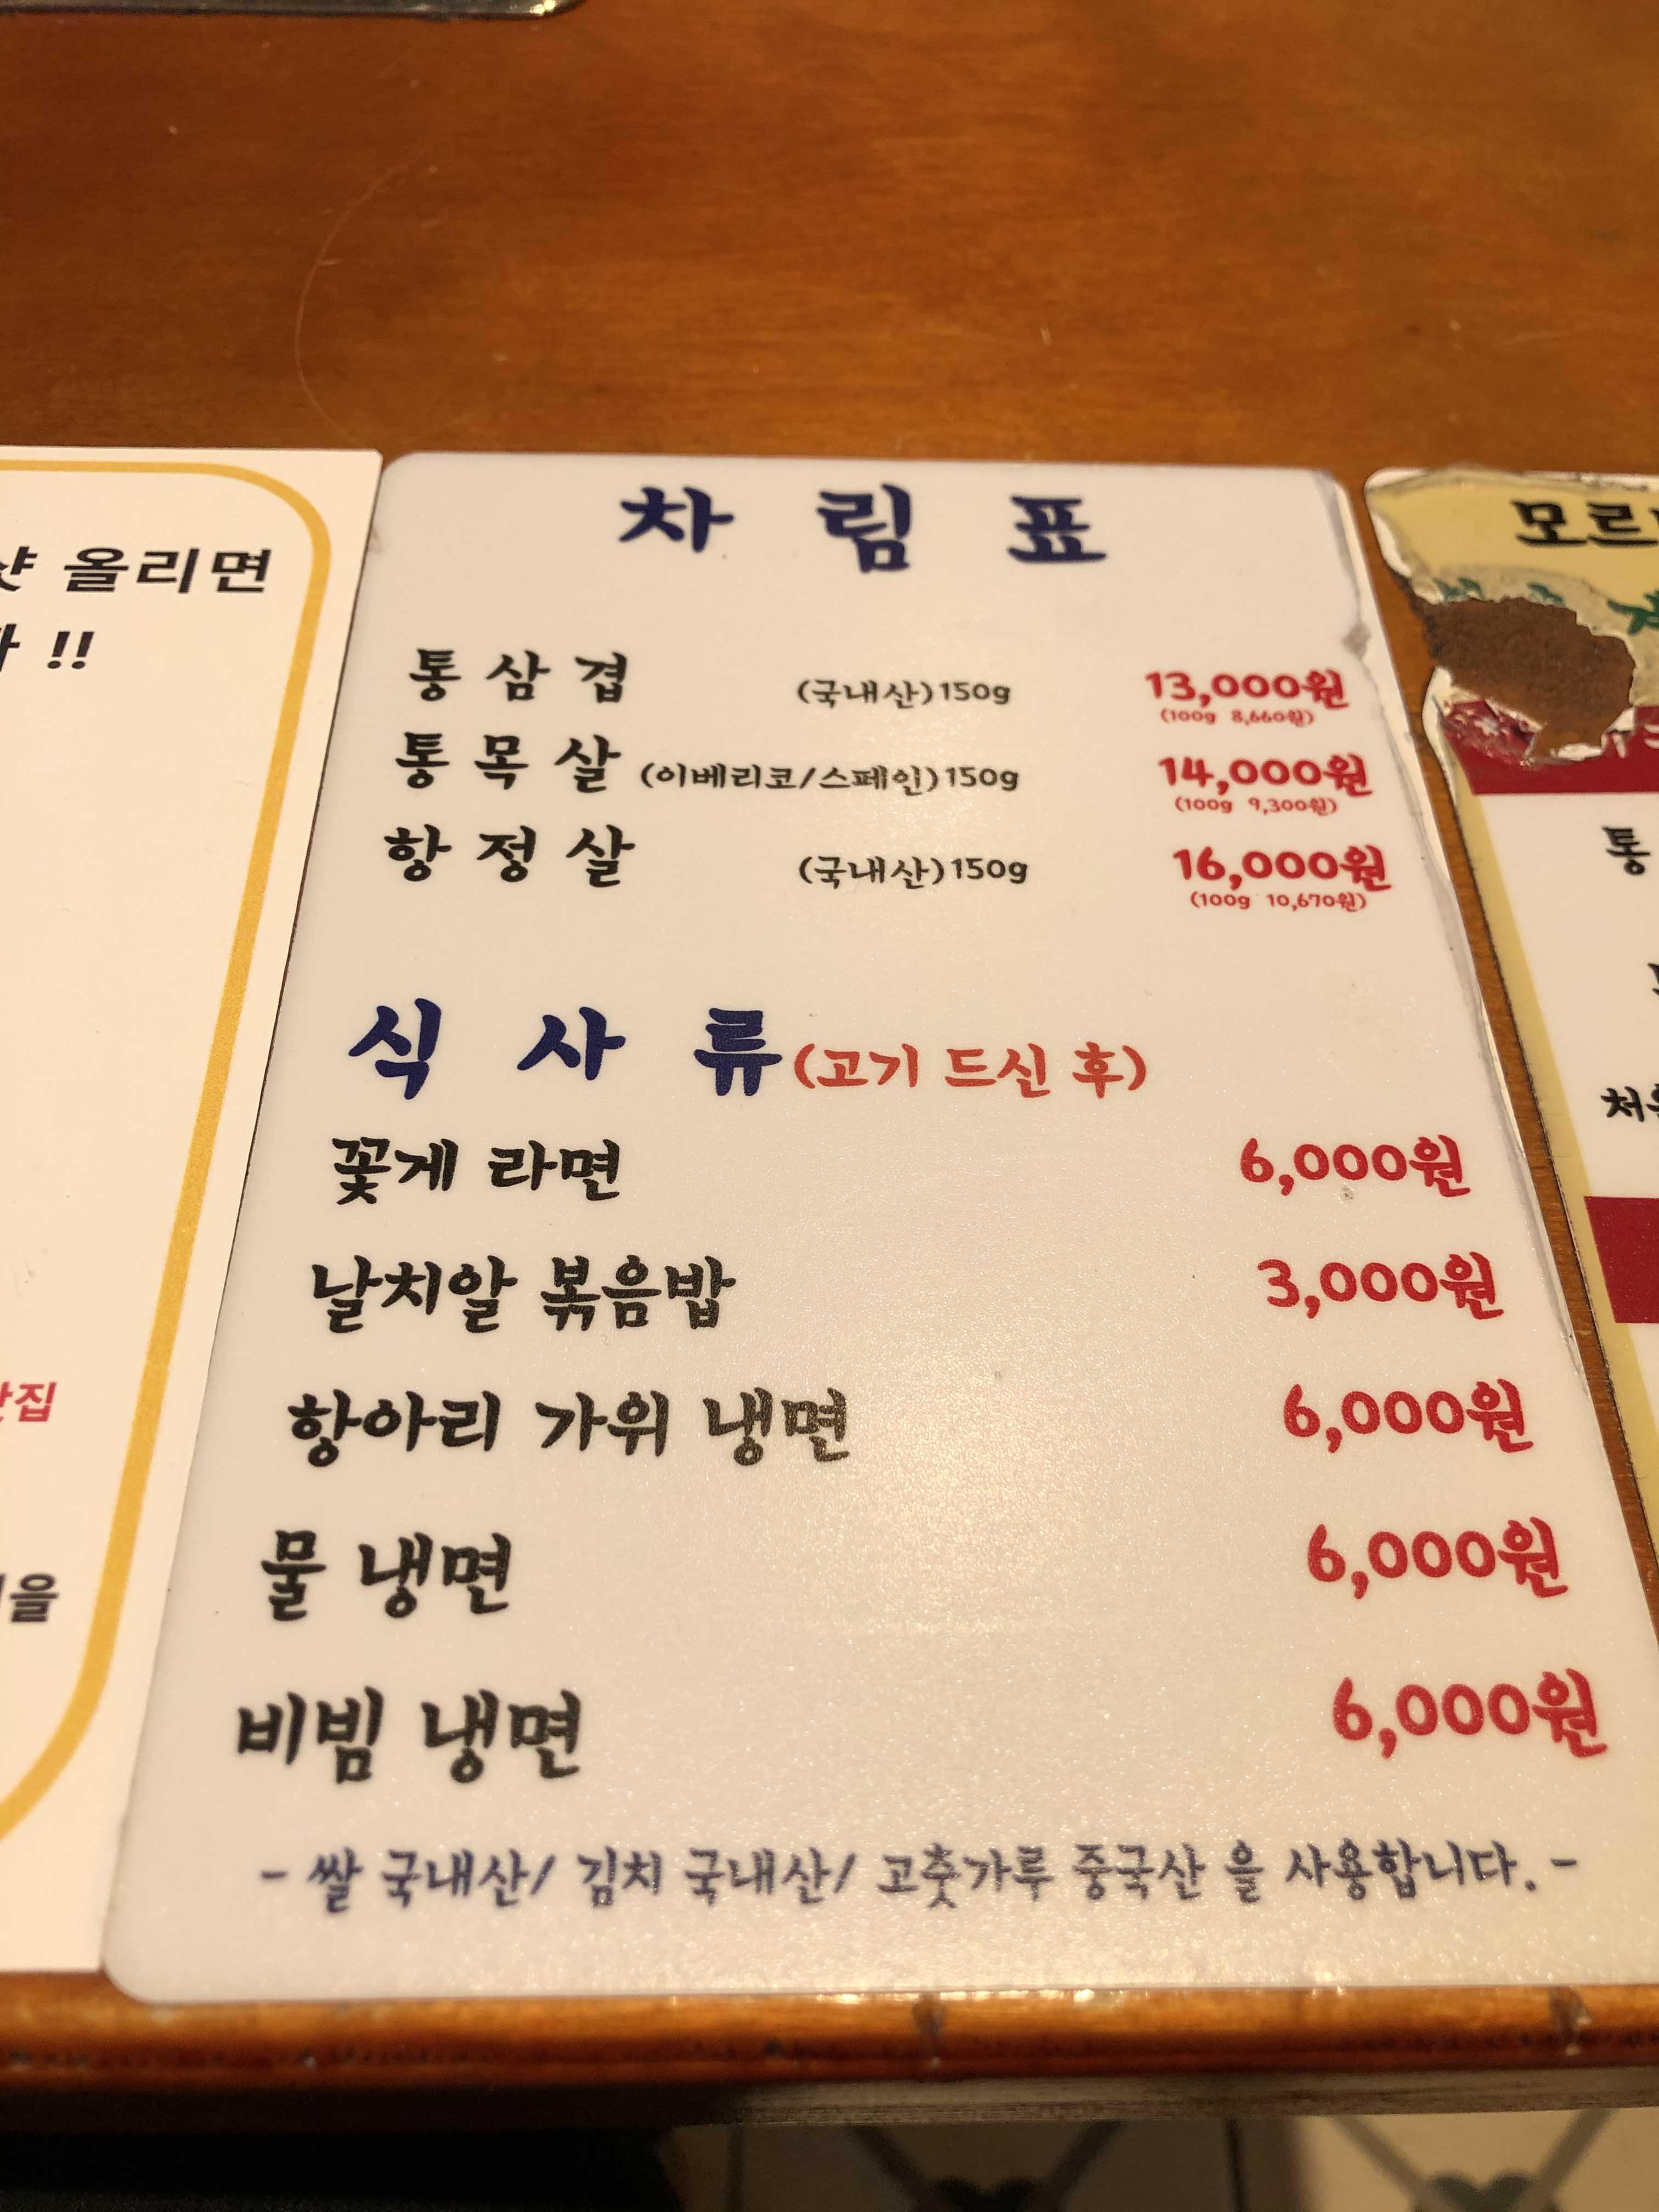 올리면
!!
을
차 림 표
통 삼 겹 (국내산)150g 13,000원
(100g 8,660원)
통 목 살 (이베리코/스페인)150g 14,000원
(100g 9,300원)
항 정 살 (국내산)150g 16,000원
(100g 10,670원)
식 사 류(고기 드신 후)
꽃게 라면 6,000원
날치알 볶음밥 3,000원
항아리 가위 냉면 6,000원
물 냉면 6,000원
비빔 냉면 6,000원
- 쌀 국내산/ 김치 국내산/ 고춧가루 중국산 을 사용합니다. -
모르
통